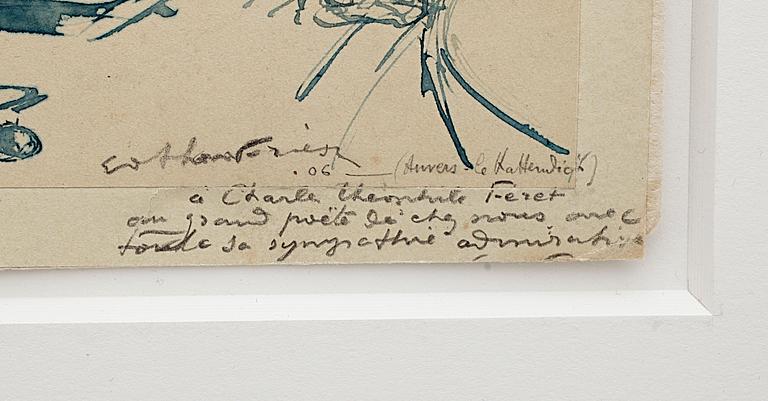 E Othon Friesz
. 06 — (Anvers - le Kattendijk)
à Charles Théophile Feret
au grand poëte de chez nous, avec
toute sa sympathie admirative